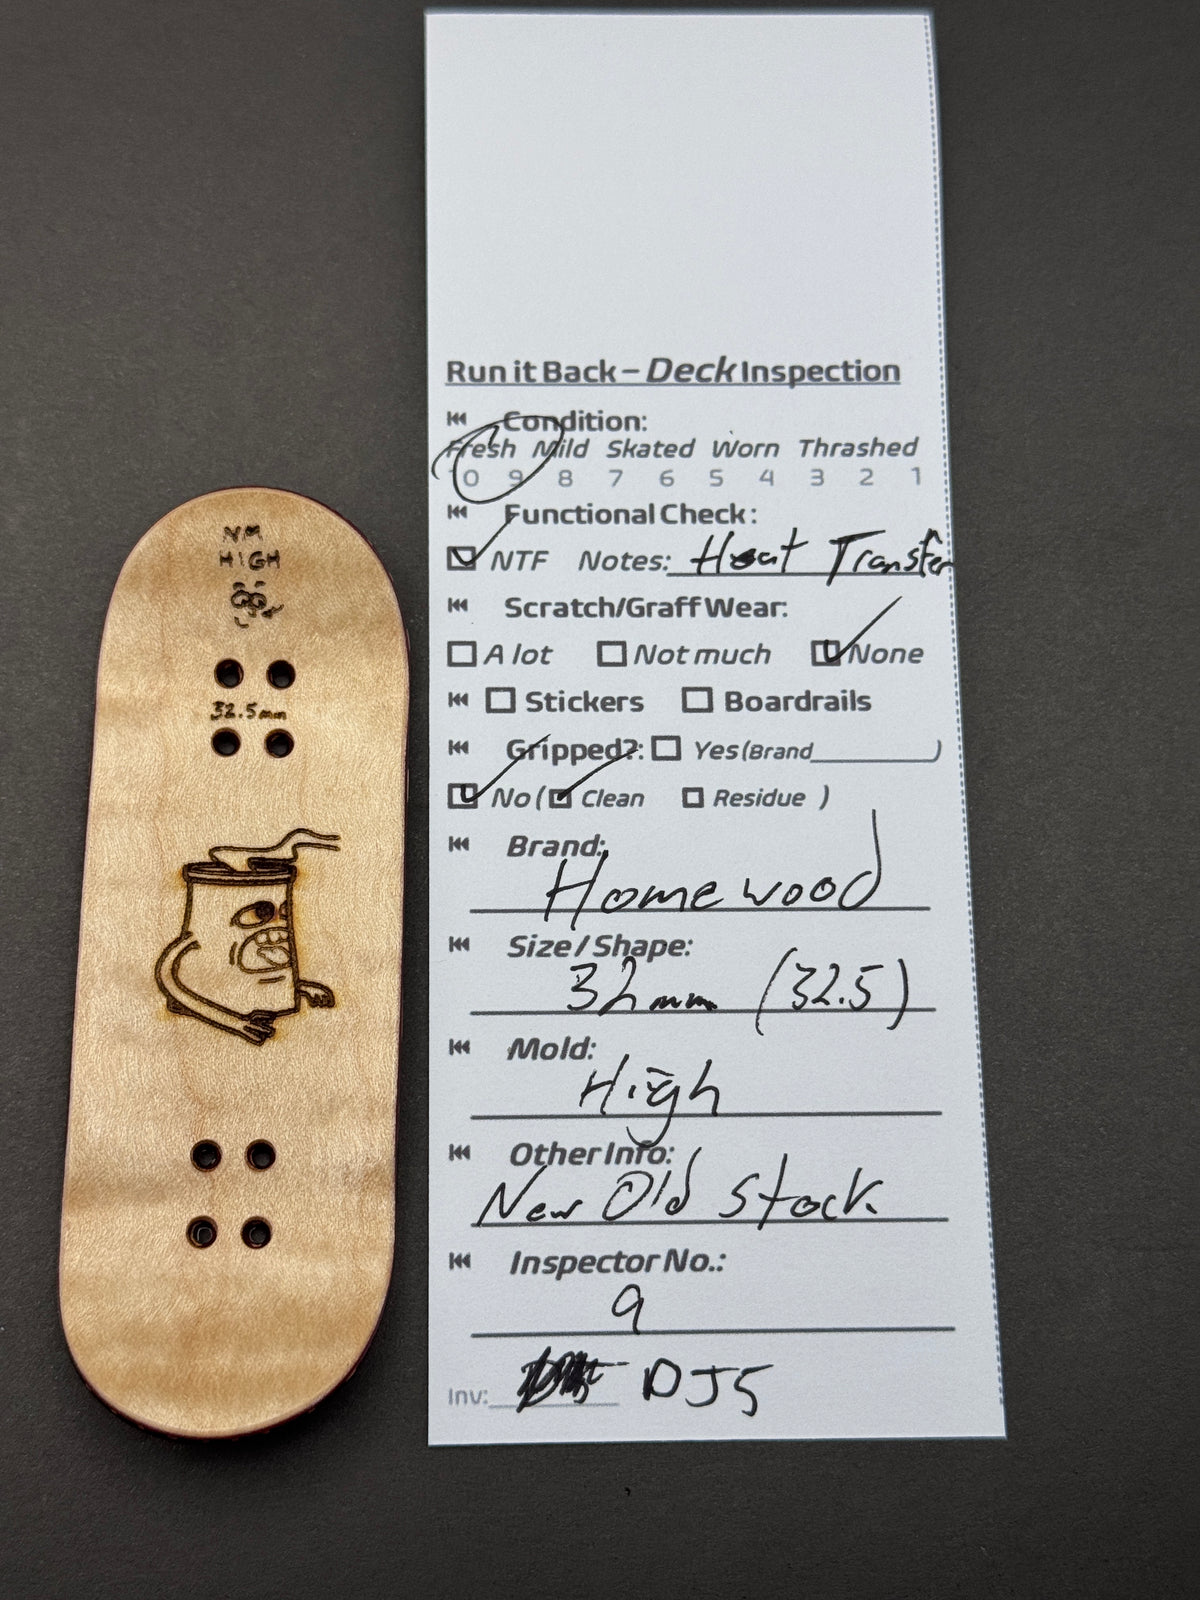 NM
HIGH
32.5mm
Run it Back – Deck Inspection
Condition:
Fresh Mild Skated Worn Thrashed
10 9 8 7 6 5 4 3 2 1
Functional Check:
NTF Notes: Heat Transfer
Scratch/Graff Wear:
A lot Not much None
Stickers Boardrails
Gripped?: Yes (Brand__________)
No ( Clean Residue )
Brand:
Homewood
Size / Shape:
32mm (32.5)
Mold:
High
Other Info:
New Old Stock
Inspector No.:
9
Inv: DJ5